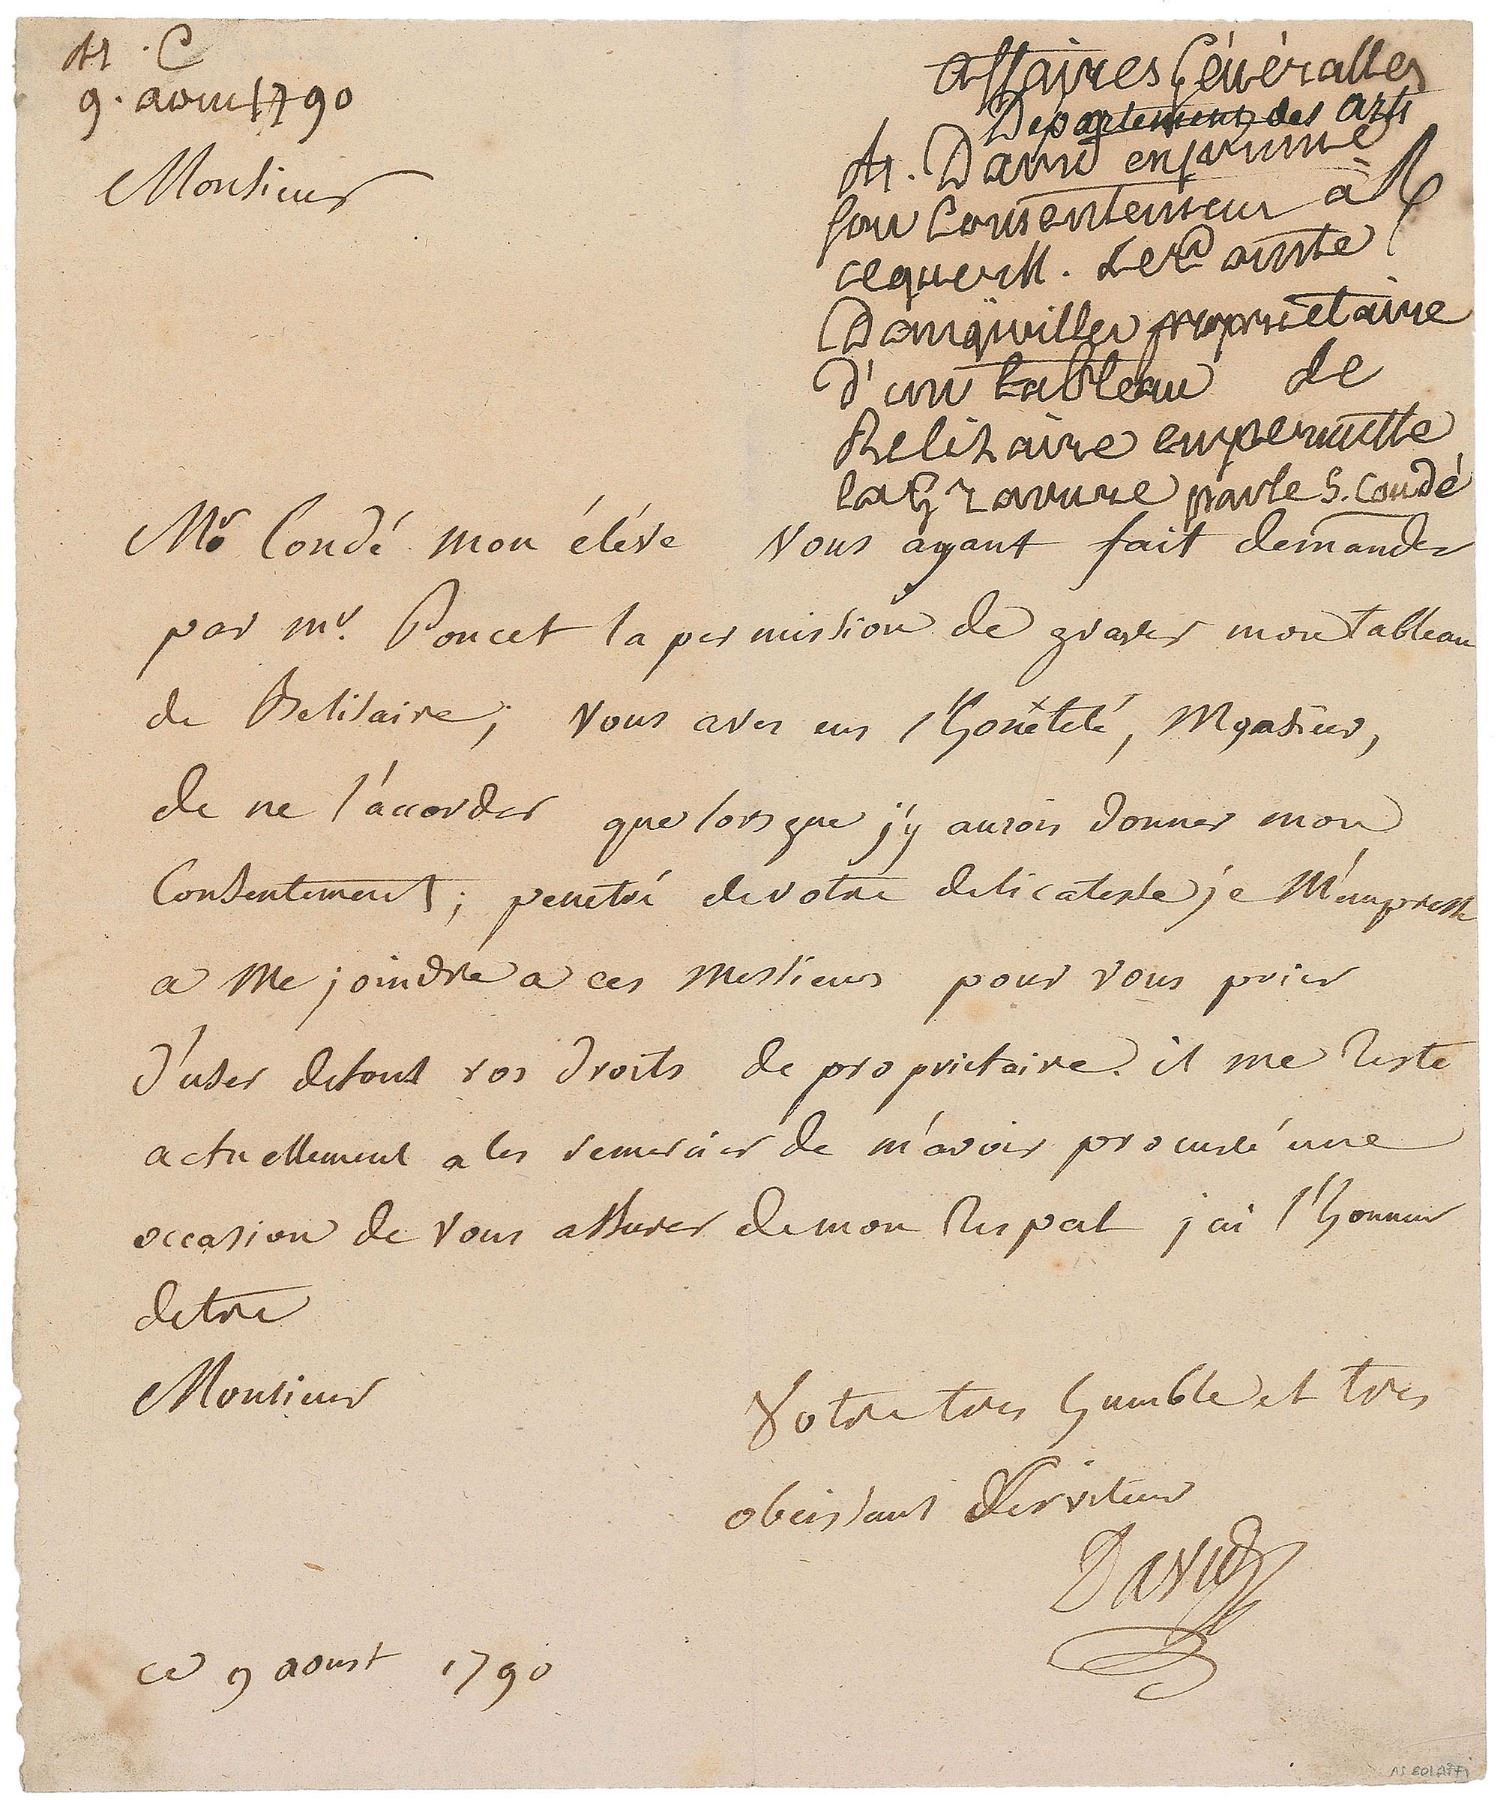 M. C
9. aoust 1790
affaires Généralles
Departement des arts
M. David exprime
son consentement à
ce que M. Le Comte
Dangiviller proprietaire
d'un tableau de
Belizaire en permette
la Gravure par le S. Condé
Monsieur
Mr Condé mon éléve vous ayant fait demander
par mr. Poncet la permission de graver mon tableau
de Belisaire; vous avez eus l'honêteté, Monsieur,
de ne l'accorder que lorsque j'y aurois donner mon
Consentement; penetré de votre delicatesse je M'empresse
a Me joindre a ces Messieurs pour vous prier
d'user de tous vos droits de proprietaire. il me reste
actuellement a les remercier de m'avoir procuré une
occasion de vous assurer de mon respect j'ai l'honneur
detre
Monsieur
Votre tres humble et tres
obeissant Serviteur
David
ce 9 aoust 1790